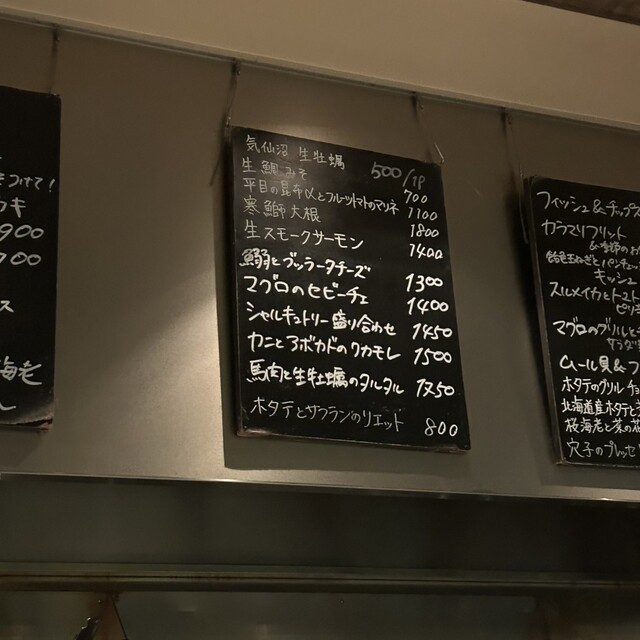 つけて!
キ
900
700
ス
海老
気仙沼 生牡蠣 500/1P
生鯛みそ 700
平目の昆布〆とフルーツトマトのマリネ 1100
寒鰤大根 1800
生スモークサーモン 1400
鰯とブッラータチーズ 1300
マグロのセビーチェ 1400
シャルキュトリー盛り合わせ 1450
カニとアボカドのワカモレ 1500
馬肉と生牡蠣のタルタル 1750
ホタテとサフランのリエット 800
フィッシュ&チップス
カラマリフリット
&季節の
パンチェ
キッシュ
スルメイカとトマト
ピリ
マグロのグリル
サラダ
ムール貝&フ
ホタテのグリル チョ
北海道産ホタテと
桜海老と菜の花
穴子のプレッセ